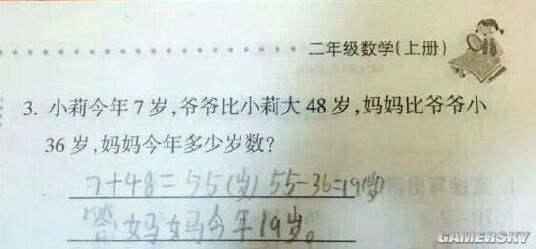 二年级数学(上册)
3. 小莉今年7岁,爷爷比小莉大48岁,妈妈比爷爷小
36岁,妈妈今年多少岁数?
7+48=55(岁) 55-36=19(岁)
答妈妈今年19岁。
GAMERSKY